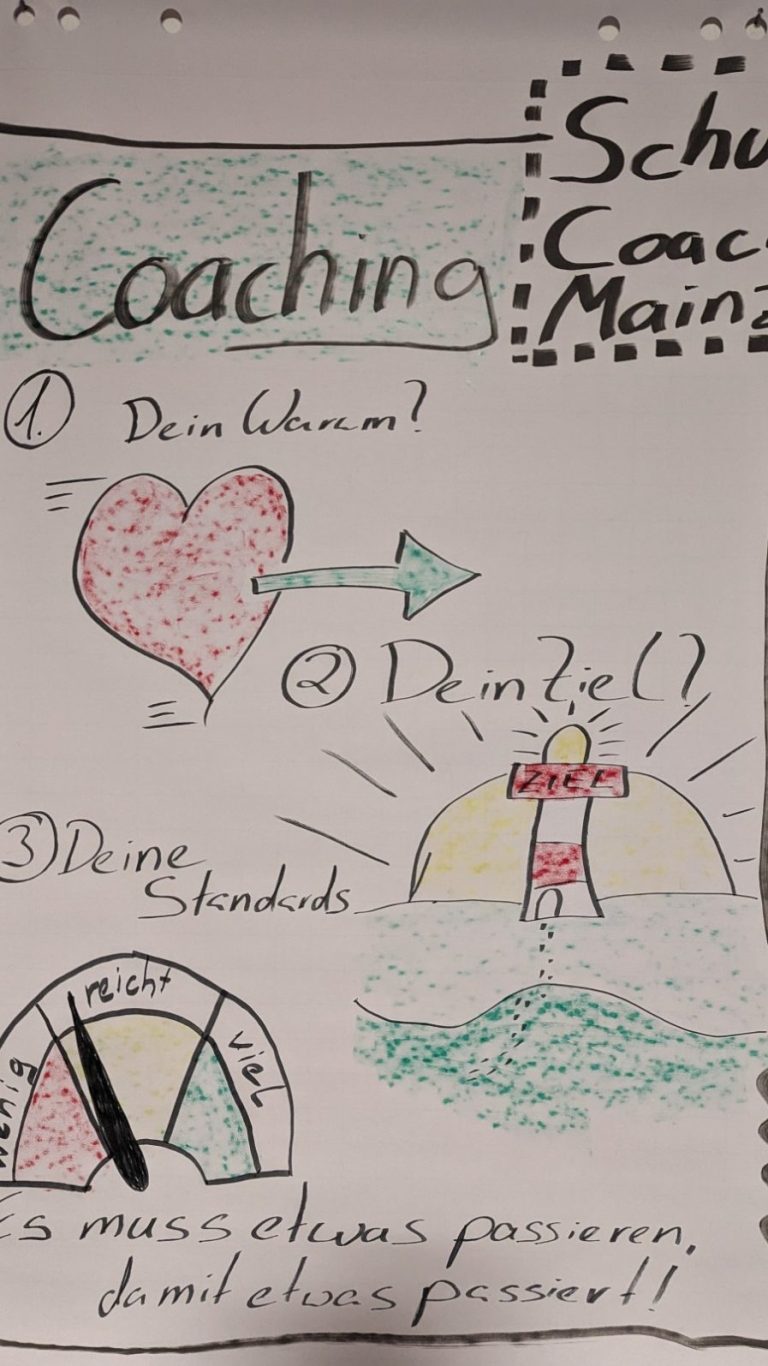 Coaching
Schu
Coac
Mainz
1. Dein Warum?
2 Dein Ziel?
ZIEL
3 Deine
Standards
wenig
reicht
viel
Es muss etwas passieren,
damit etwas passiert!